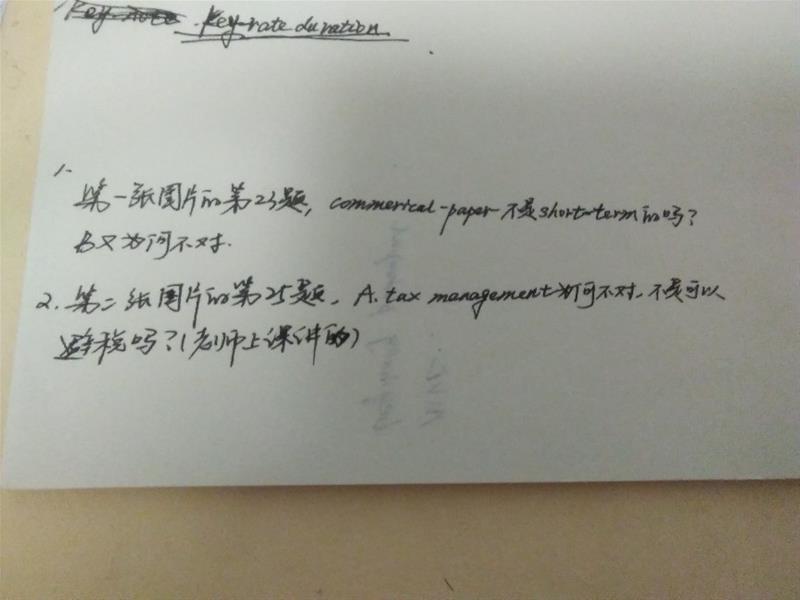 Key-note Key-rate duration
1.
第一张图片的第23题, commerical-paper 不是short-term的吗?
B又为何不对.
2. 第二张图片的第25题, A. tax management为何不对, 不是可以
避税吗?(老师上课讲的)